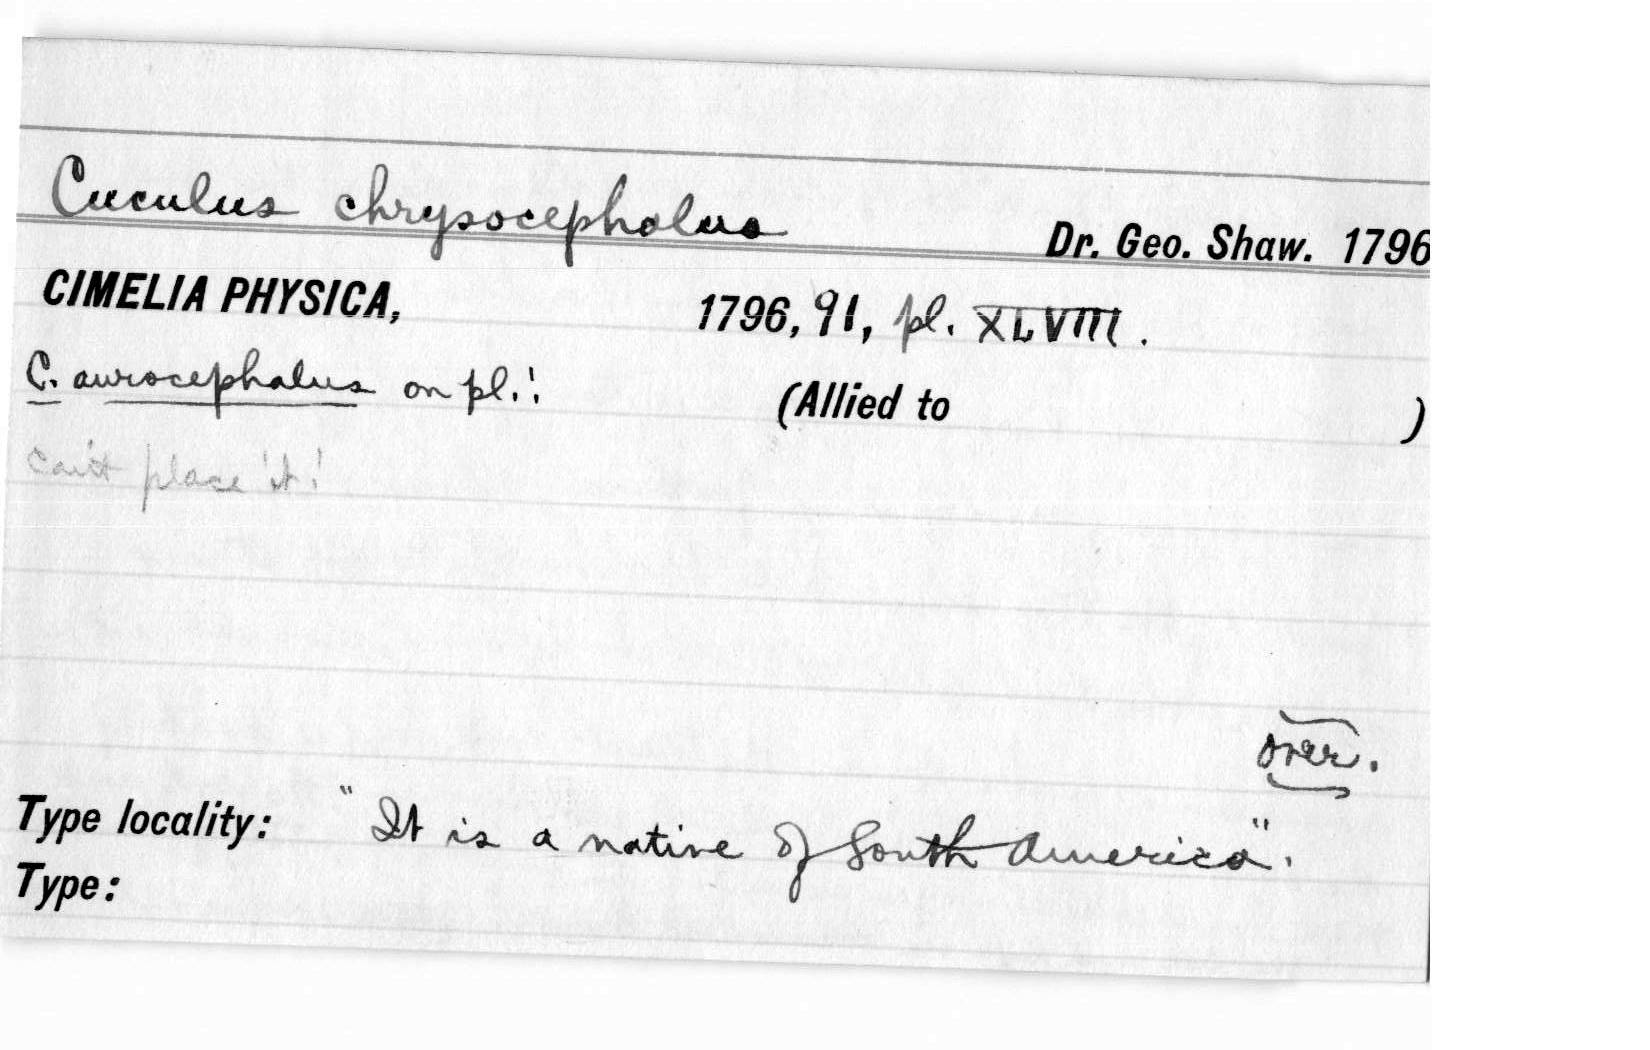 Cuculus chrysocephalus
Dr. Geo. Shaw. 1796
CIMELIA PHYSICA, 1796, 91, pl. XLVIII.
C. aurocephalus on pl.!
(Allied to )
Can't place it!
over.
Type locality: "It is a native of South America".
Type: